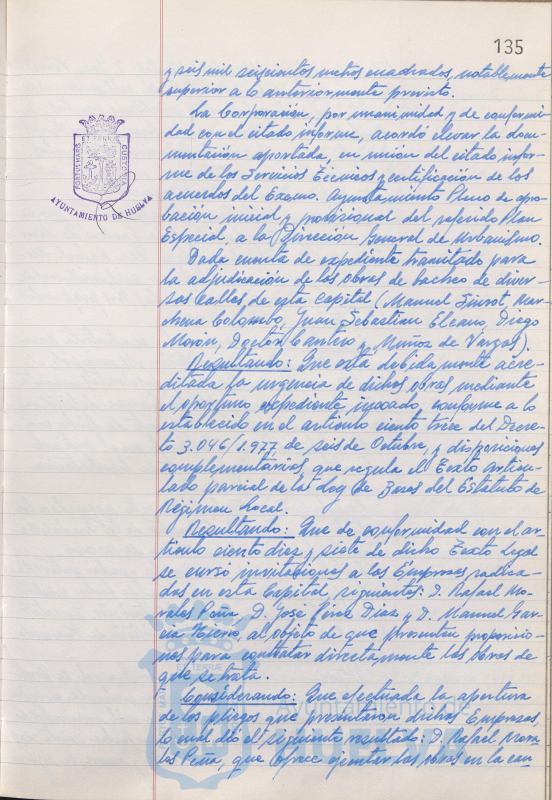 135
y seis mil seiscientos metros cuadrados, notablemente
superior a lo anteriormente previsto.
La Corporación, por unanimidad y de conformi
dad con el citado informe, acordó elevar la docu-
mentación aportada, en unión del citado infor-
me de los Servicios Técnicos y certificación de los
acuerdos del Excmo. Ayuntamiento Pleno de apro-
bación inicial y provisional del referido Plan
Especial, a la Dirección General de Urbanismo.
Dada cuenta de expediente tramitado para
la adjudicación de las obras de bacheo de diver-
sas Calles de esta Capital (Manuel Siurot, Mar-
chena Colombo, Juan Sebastian Elcano, Diego
Morón, Doctor Cantero y Muñoz de Vargas).
Resultando: Que está debidamente acre-
ditada la urgencia de dichas obras mediante
el oportuno expediente incoado, conforme a lo
establecido en el artículo ciento trece del Decre-
to 3.046/1.977 de seis de Octubre, y disposiciones
complementarias, que regula el Texto Articu-
lado parcial de la Ley de Bases del Estatuto de
Régimen Local.
Resultando: Que de conformidad con el ar-
tículo ciento diez y siete de dicho Texto Legal
se cursó invitaciones a las Empresas radica-
das en esta Capital, siguientes: D. Rafael Mo-
rales Peña, D. José Pérez Diaz y D. Manuel Gar-
cia Hierro, al objeto de que presenten proposicio-
nes para contratar directamente las obras de
que se trata.
Considerando: Que efectuada la apertura
de los pliegos que presentaron dichas Empresas,
lo cual dió el siguiente resultado: D. Rafael Mora-
les Peña, que ofrece ejecutar las obras en la can-
PORTUS MARIS ET TERRAE CUSTODIA
AYUNTAMIENTO DE HUELVA
Ayuntamiento de
HUELVA